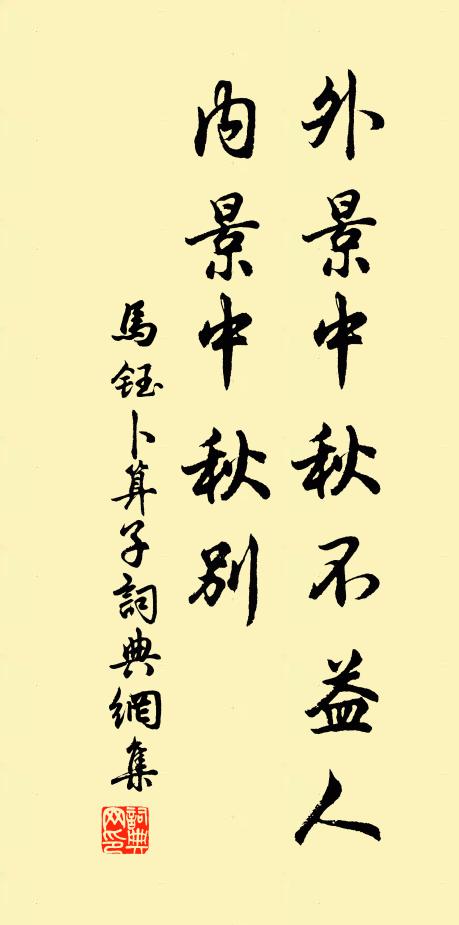 外景中秋不益人
内景中秋別
馬鈺卜算子詞典網集
詞典網印